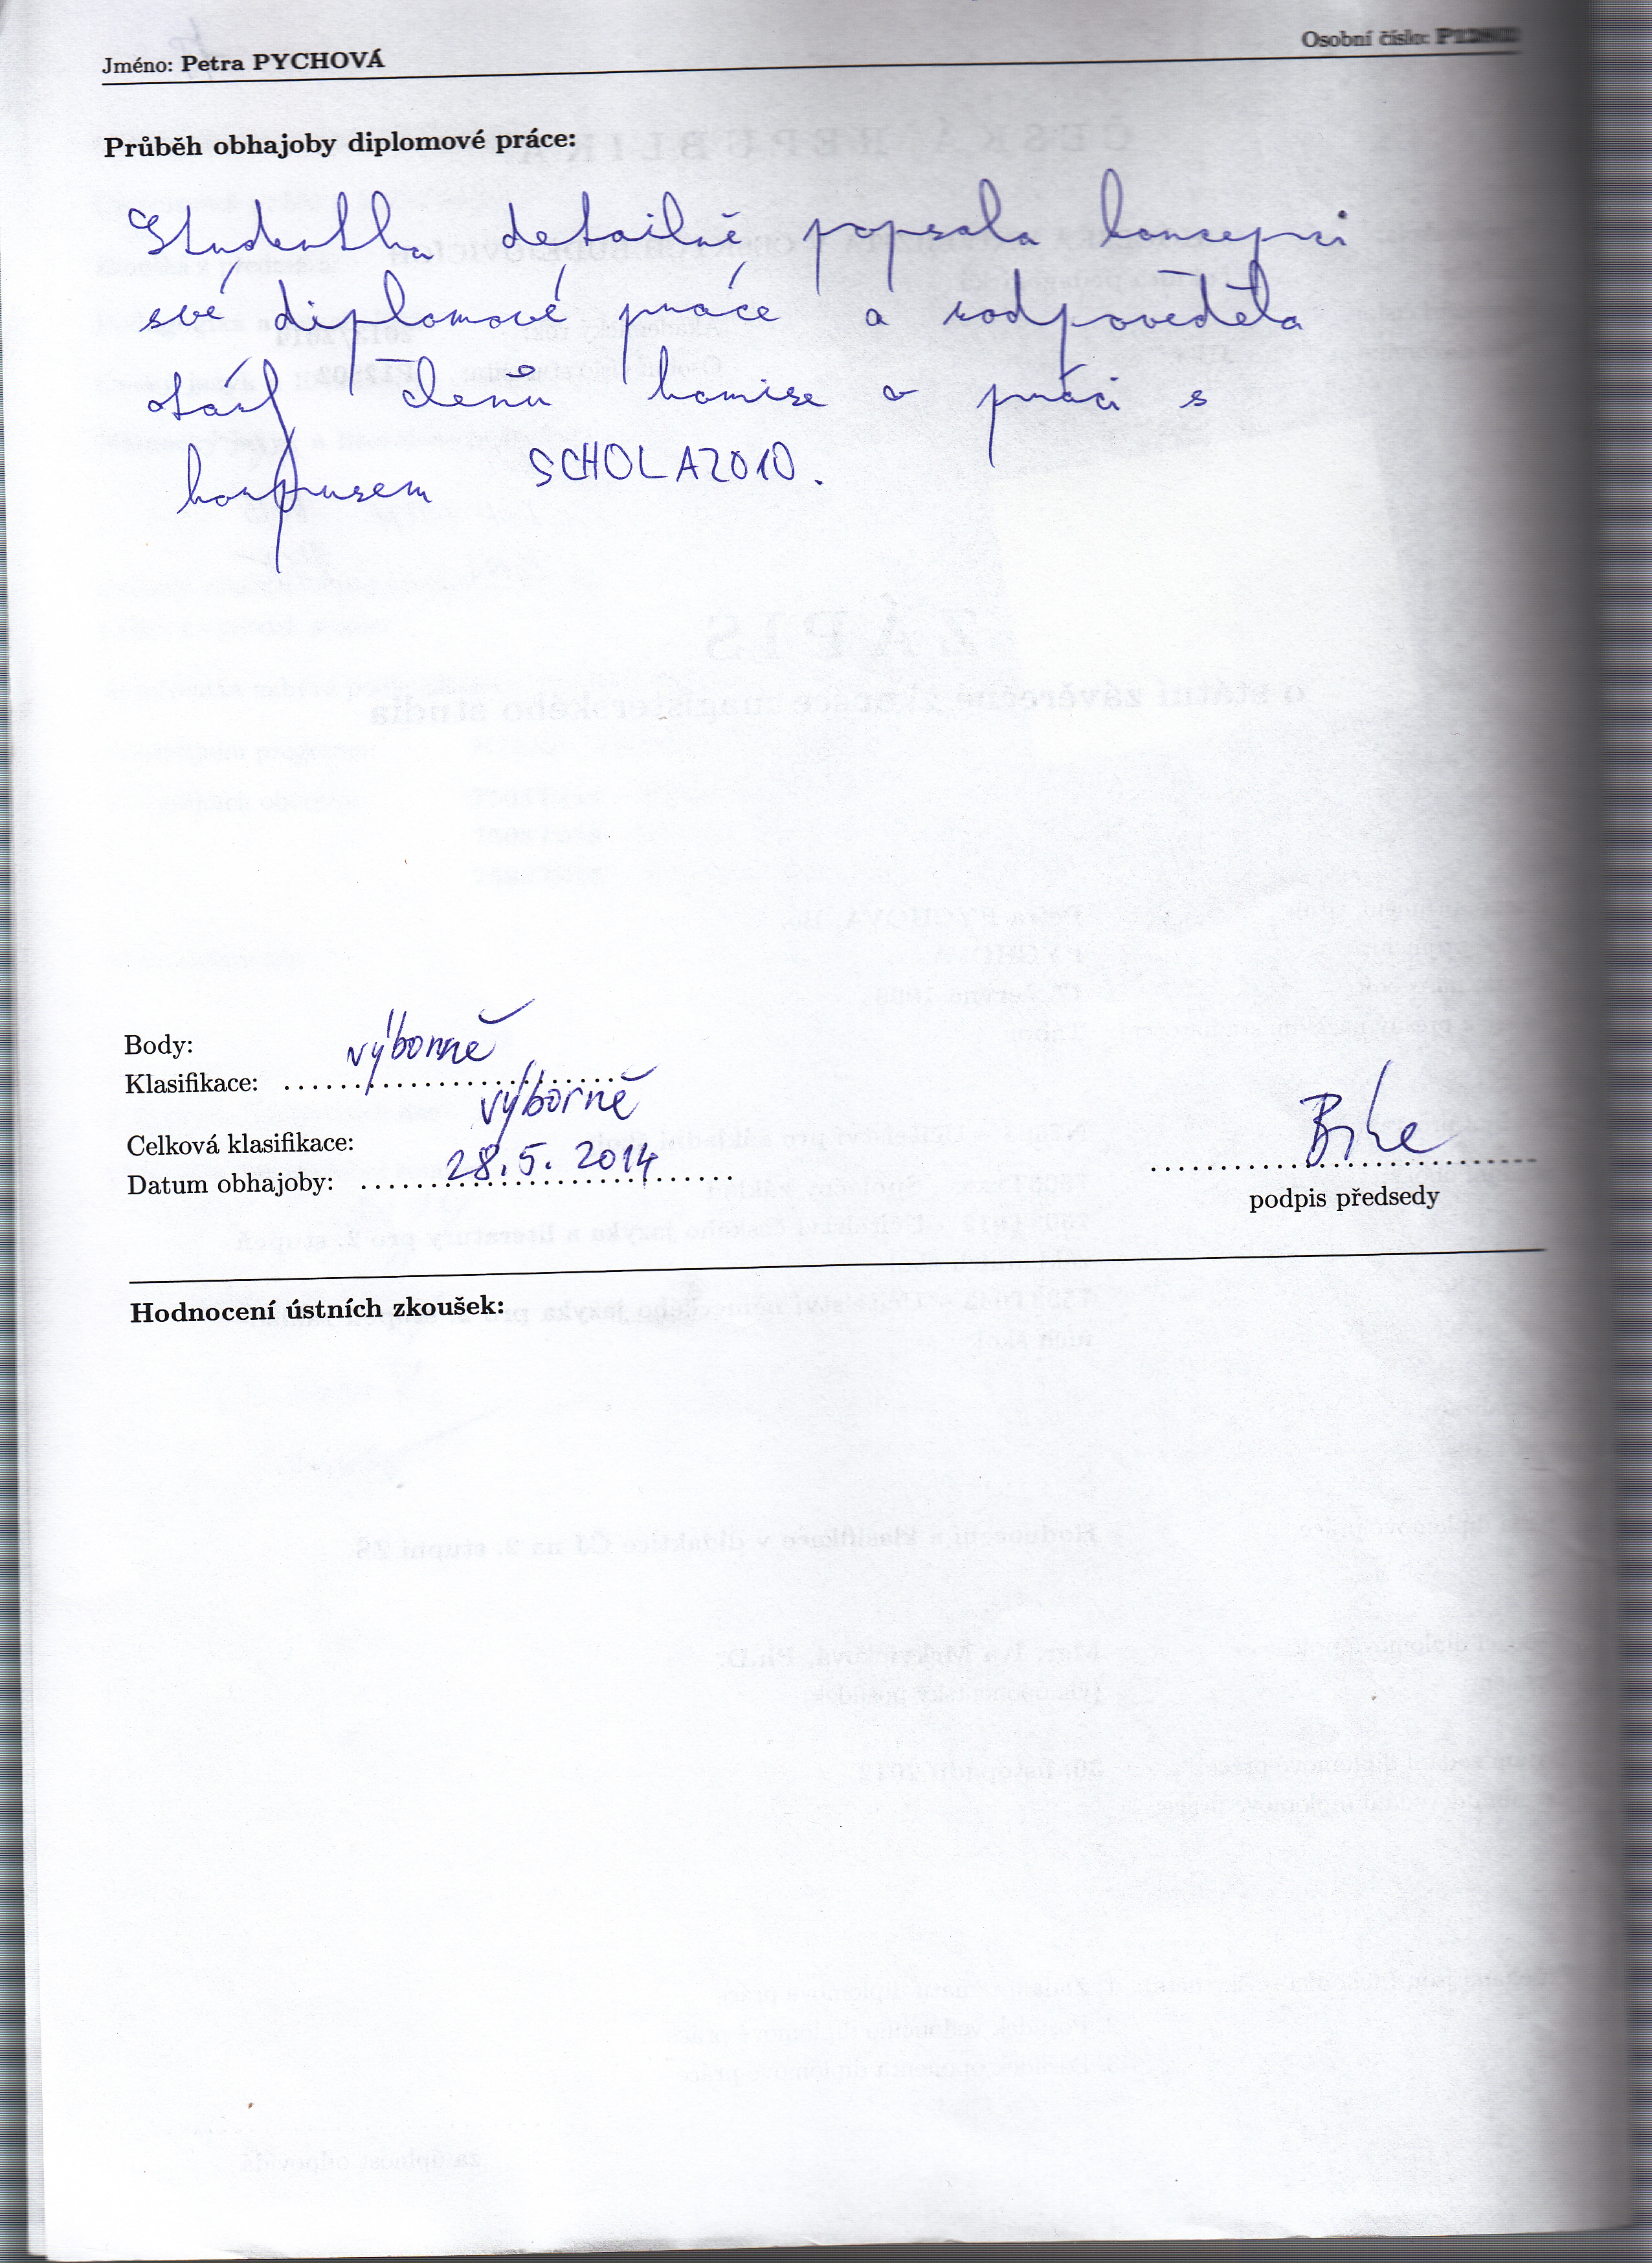 Jméno: Petra PYCHOVÁ
Osobní číslo:
Průběh obhajoby diplomové práce:
Studentka detailně popsala koncepci
své diplomové práce a zodpověděla
otázky členů komise o práci s
korpusem SCHOLA2010.
Body:
výborně
Klasifikace:
výborně
Celková klasifikace:
Datum obhajoby: 28.5.2014
podpis předsedy
Hodnocení ústních zkoušek: